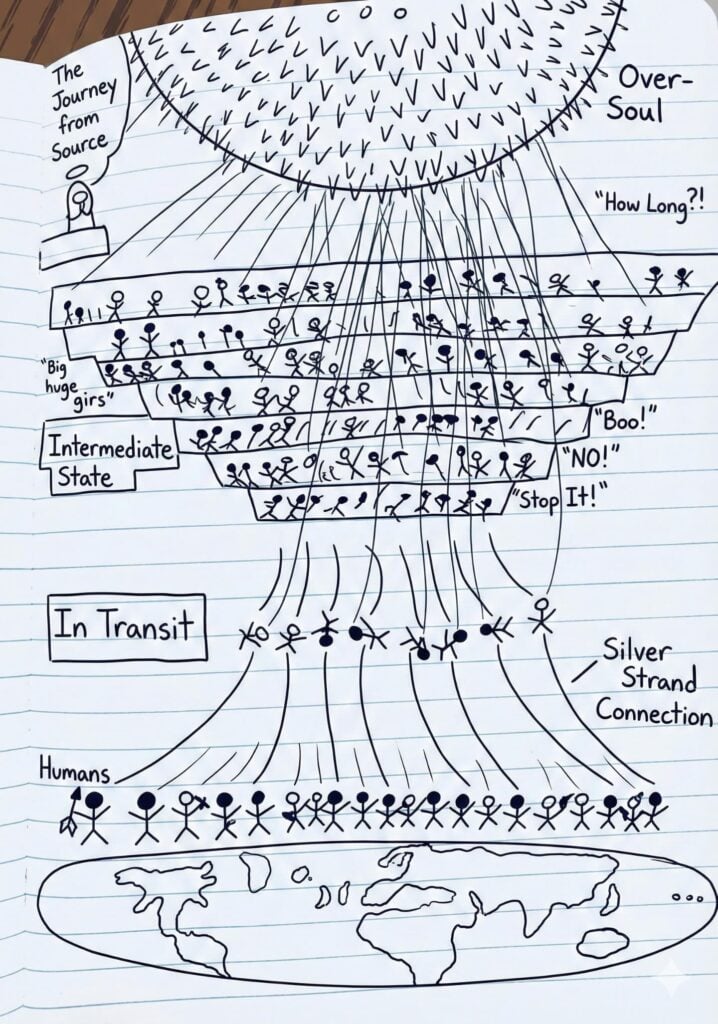 The
Journey
from
Source
Over-
Soul
"How Long?!
"Big
huge
girs"
Intermediate
State
"Boo!"
"NO!"
"Stop It!"
In Transit
Silver
Strand
Connection
Humans